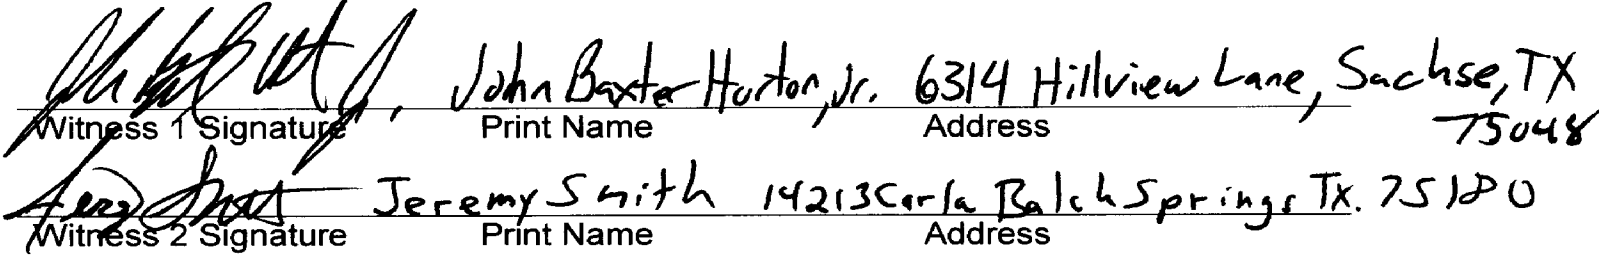 John Baxter Horton, Jr. 6314 Hillview Lane, Sachse, TX
Witness 1 Signature Print Name Address 75048
Jeremy Smith 14213 Carla Balch Springs TX. 75180
Witness 2 Signature Print Name Address